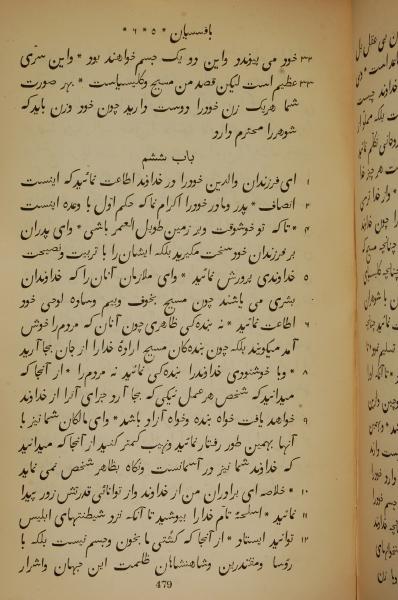 بافسسیان * ۵ * ۶ *
۳۲ خود می پیوندد واین دو یک جسم خواهند بود * واین سرّی
۳۳ عظیم است لیکن قصد من مسیح وکلیسیاست * بهر صورت
شما هریک زن خودرا دوست دارید چون خود وزن باید که
شوهررا محترم دارد
باب ششم
۱ ای فرزندان والدین خودرا در خداوند اطاعت نمائید که اینست
۲ انصاف * پدر ومادر خودرا اکرام نما که حکم اوّل با وعده اینست
۴ * تا که تو خوشوقت وبر زمین طویل العمر باشی * وای پدران
بر فرزندان خود سخت مگیرید بلکه ایشان را با تربیت ونصیحت
۵ خداوندی پرورش نمائید * وای ملازمان آنان را که خداوندان
بشری می باشند چون مسیح بخوف وبیم وساده لوحی خود
۶ اطاعت نمائید * نه بنده کی ظاهری چون آنان که مردم را خوش
آمد میگویند بلکه چون بنده کان مسیح ارادهٔ خدا را از جان بجا آرید
۸ * وبا خوشنودی خداوندرا بنده کی نمائید نه مردم را * از آنجا که
میدانید که شخص هر عمل نیکی که بجا آرد جزای آنرا از خداوند
۹ خواهد یافت خواه بنده وخواه آزاد باشد * وای مالکان شما نیز با
آنها بهمین طور رفتار نمائید ونهیب کمتر کنید از آنجا که میدانید
که خداوند شما نیز در آسمانست ونگاه بظاهر شخص نمی نماید
۱۰ * خلاصه ای برادران من از خداوند واز توانائی قدرتش زور پیدا
۱۱ نمائید * اسلحهٔ تام خدا را بپوشید تا آنکه نزد شیطنتهای ابلیس
۱۲ توانید ایستاد * از آنجا که کُشتی ما بخون وجسم نیست بلکه با
رؤسا ومقتدرین وشاهنشاهان ظلمت این جهان واشرار
479